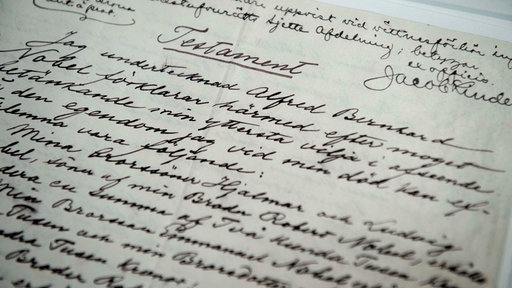 uppvist vid vittnesförhör inför
Rådstufvurätts sjette Afdelning; betygar
ex officio
Testament
Jag undertecknad Alfred Bernhard
Nobel förklarar härmed efter moget
betänkande min yttersta vilja i afseende
å den egendom jag vid min död kan ef-
terlemna vara följande:
Mina Brorsöner Hjalmar och Ludvig
söner af min Broder Robert Nobel, erhålla
en summa af Två Hundra Tusen
Min Brorson Emmanuel Nobel
Tusen och min Brorsdotter
Tusen Kronor;
Broder